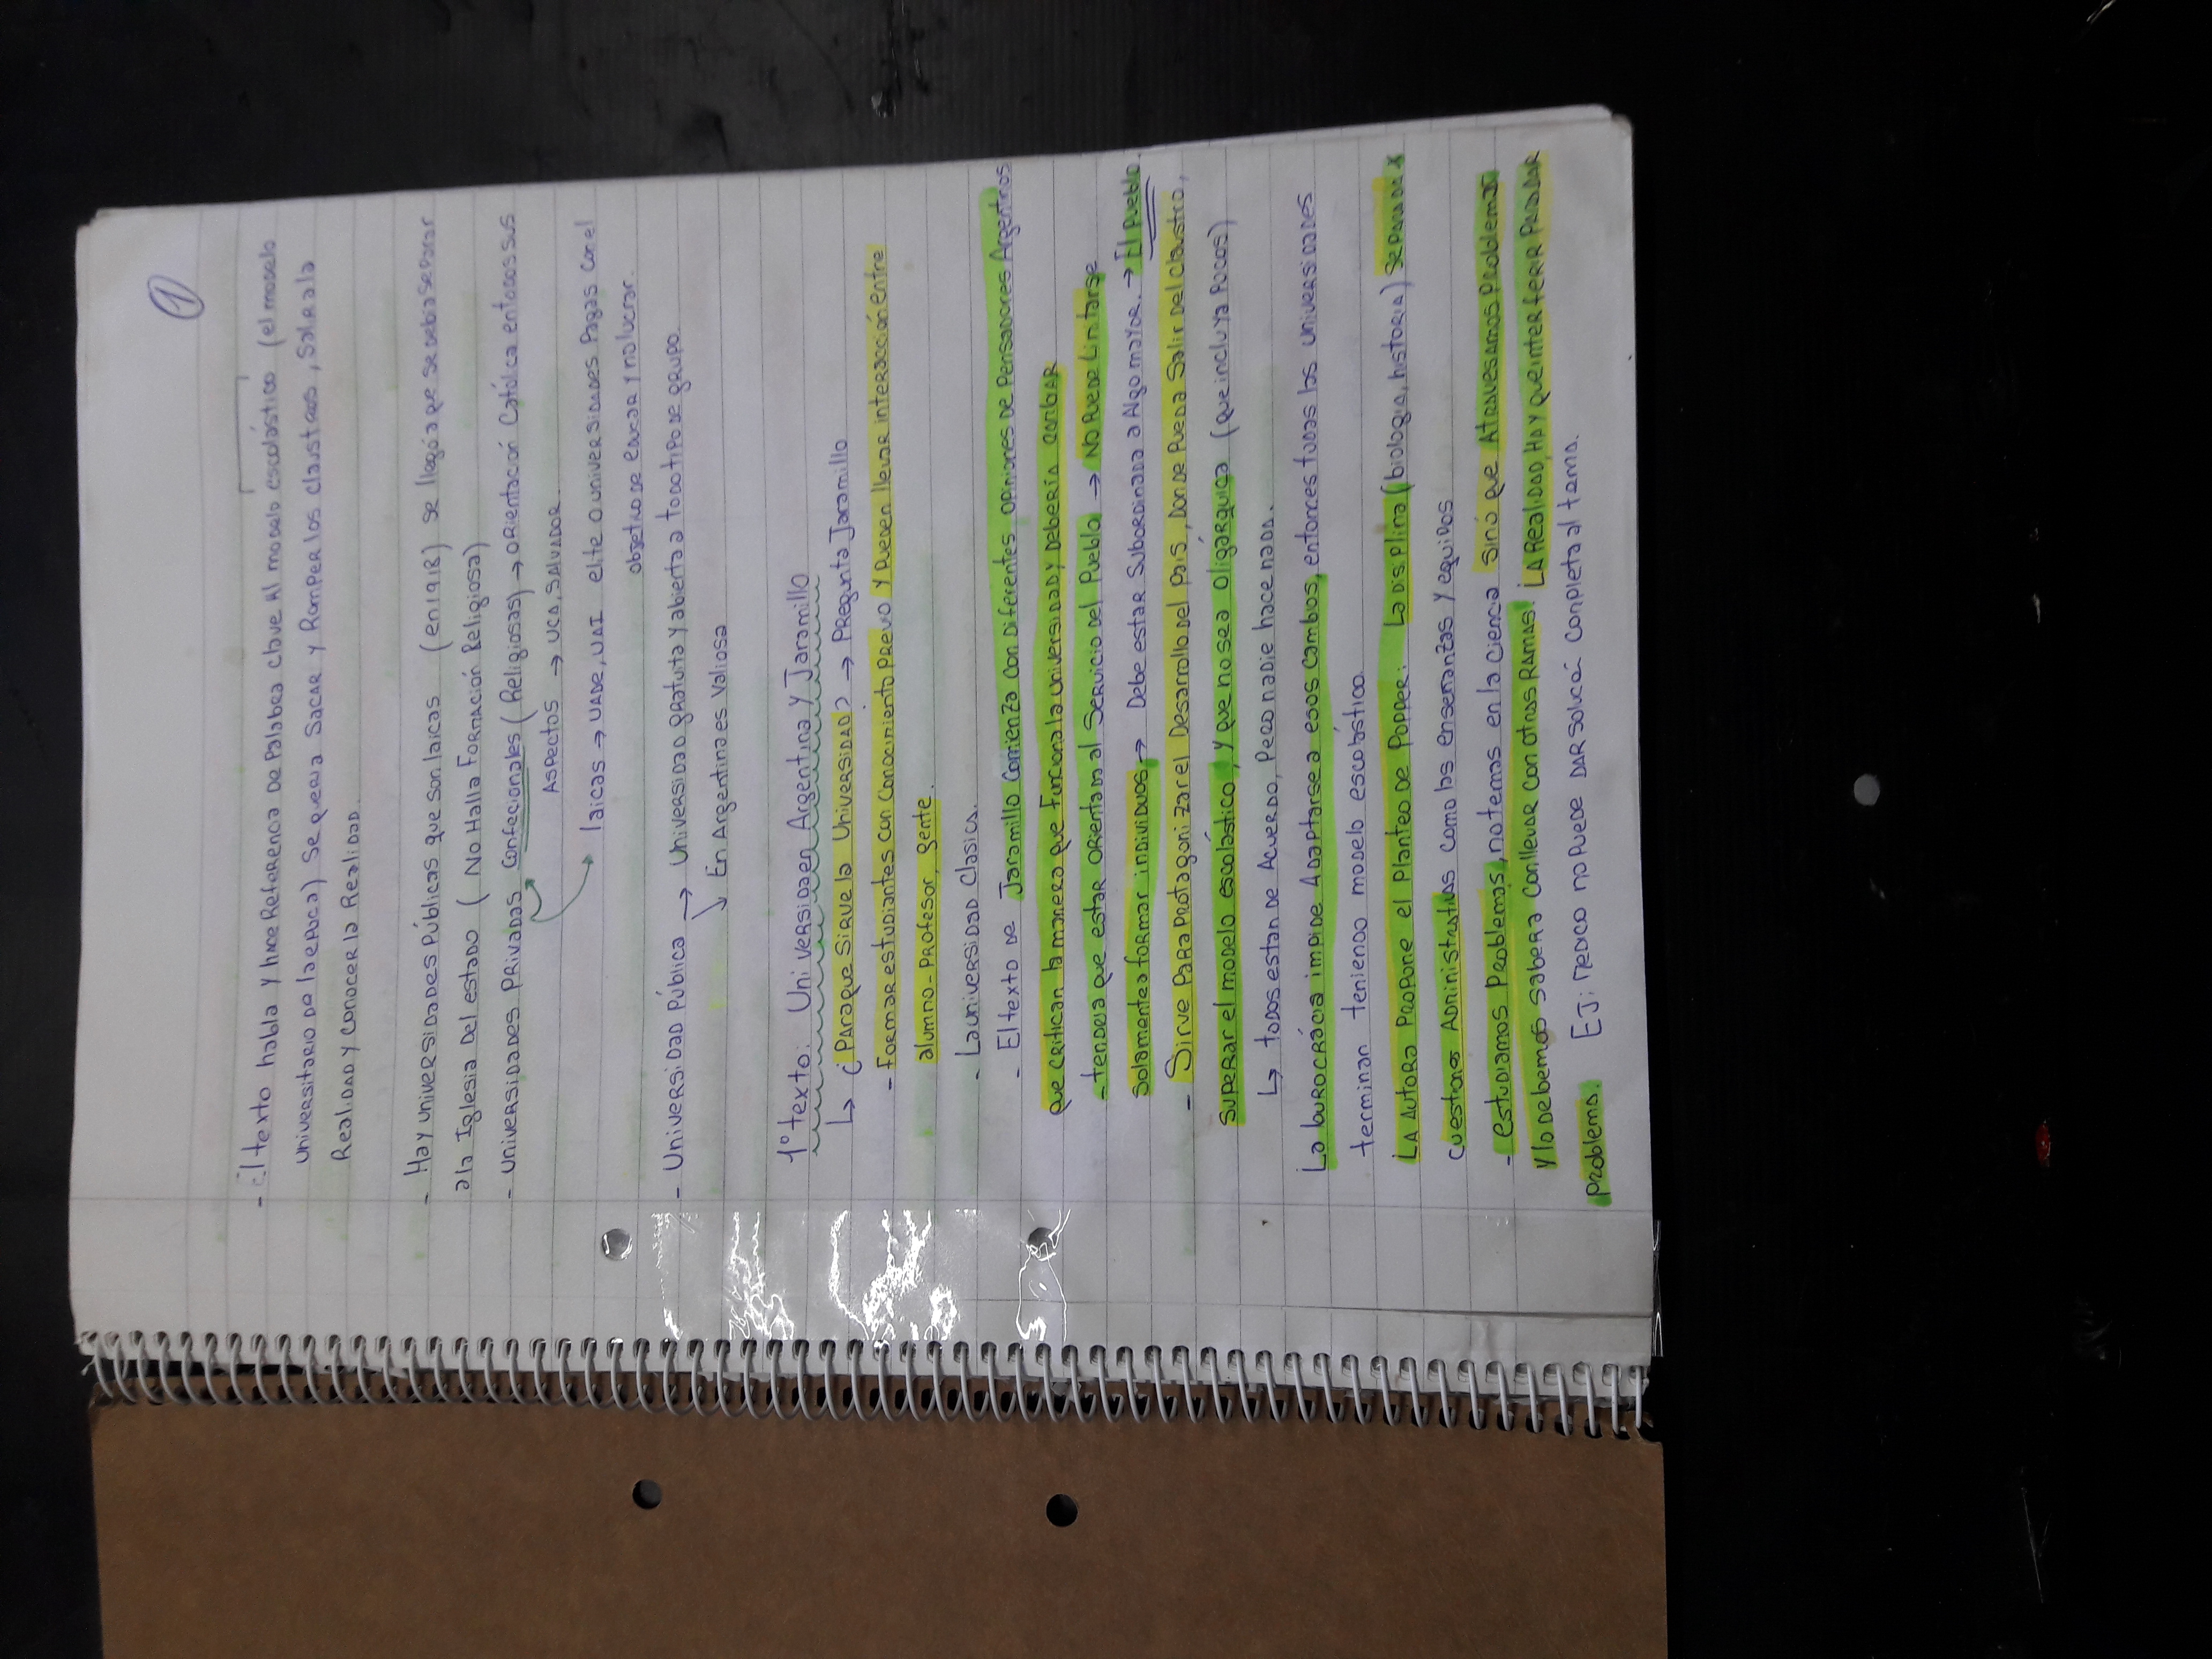 1
- El texto habla y hace Referencia De Palabra clave Al modelo escolástico (el modelo
Universitario De la epoca) Se queria Sacar y Romper los claustros, Salir a la
Realidad y conocer la Realidad.
- Hay universidades Públicas que son laicas (en 1918) se llegó a que se debia separar
a la Iglesia Del estado ( No Halla Formación Religiosa)
- Universidades Privadas Confecionales ( Religiosas) → orientación Católica en todos sus
Aspectos → UCA, SALVADOR.
laicas → UADE, UAI elite o universidades Pagas con el
objetivo de educar y no lucrar.
- Universidad Pública → Universidad gratuita y abierta a todo tipo de grupo.
↓ En Argentina es Valiosa
1° texto: Universida en Argentina y Jaramillo
↳ ¿Para que Sirve la Universidad? → Pregunta Jaramillo
- Formar estudiantes con conocimiento Previo y pueden llevar interacción entre
alumno - Profesor, gente.
- La universidad Clasica.
- El texto de Jaramillo comienza con diferentes opiniones de Pensadores Argentinos
que critican la manera que funciona la universidad y debería cambiar
- tendria que estar orientada al Servicio del Pueblo → No Puede Limitarse
Solamente a formar individuos → Debe estar Subordinada a Algo mayor. → El Pueblo.
- Sirve Para Protagonizar el Desarrollo del País, Donde Pueda Salir Del claustro,
Superar el modelo escolástico, y que no sea oligárquica (que incluya Pocos)
↳ todos estan de Acuerdo, Pero nadie hace nada.
La burocrácia impide Adaptarse a esos cambios, entonces todas las universidades
terminan teniendo modelo escolástico.
La Autora Propone el Planteo de Popper: La Disiplina (biologia, historia) Separada x
cuestiones Administrativas como las enseñanzas y equipos
- estudiamos Problemas, no temas en la ciencia sinó que Atravesamos Problemas
y lo Debemos saber a conllevar con otras Ramas. La Realidad, Hay que interferir Para Dar
Problema. EJ: medico no Puede DAR solución completa al tema.